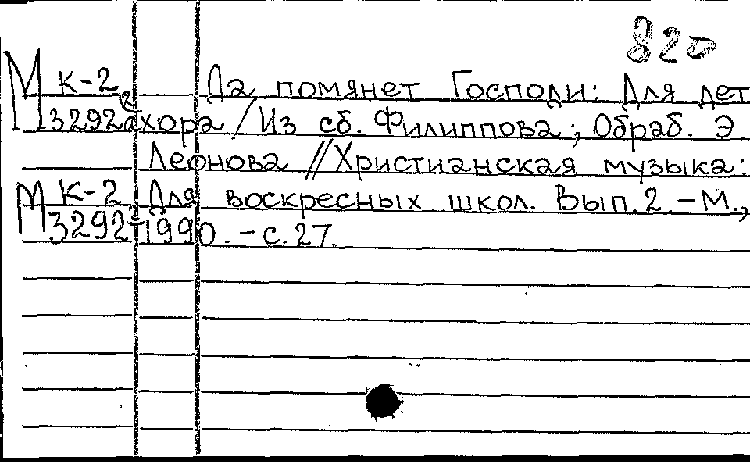 820
М К-2 Да помянет Господи: Для дет
3292 хора / Из сб. Филиппова; Обраб. Э
Леонова // Христианская музыка:
М К-2 Для воскресных школ. Вып. 2. - М.,
3292 1990. - с. 27.